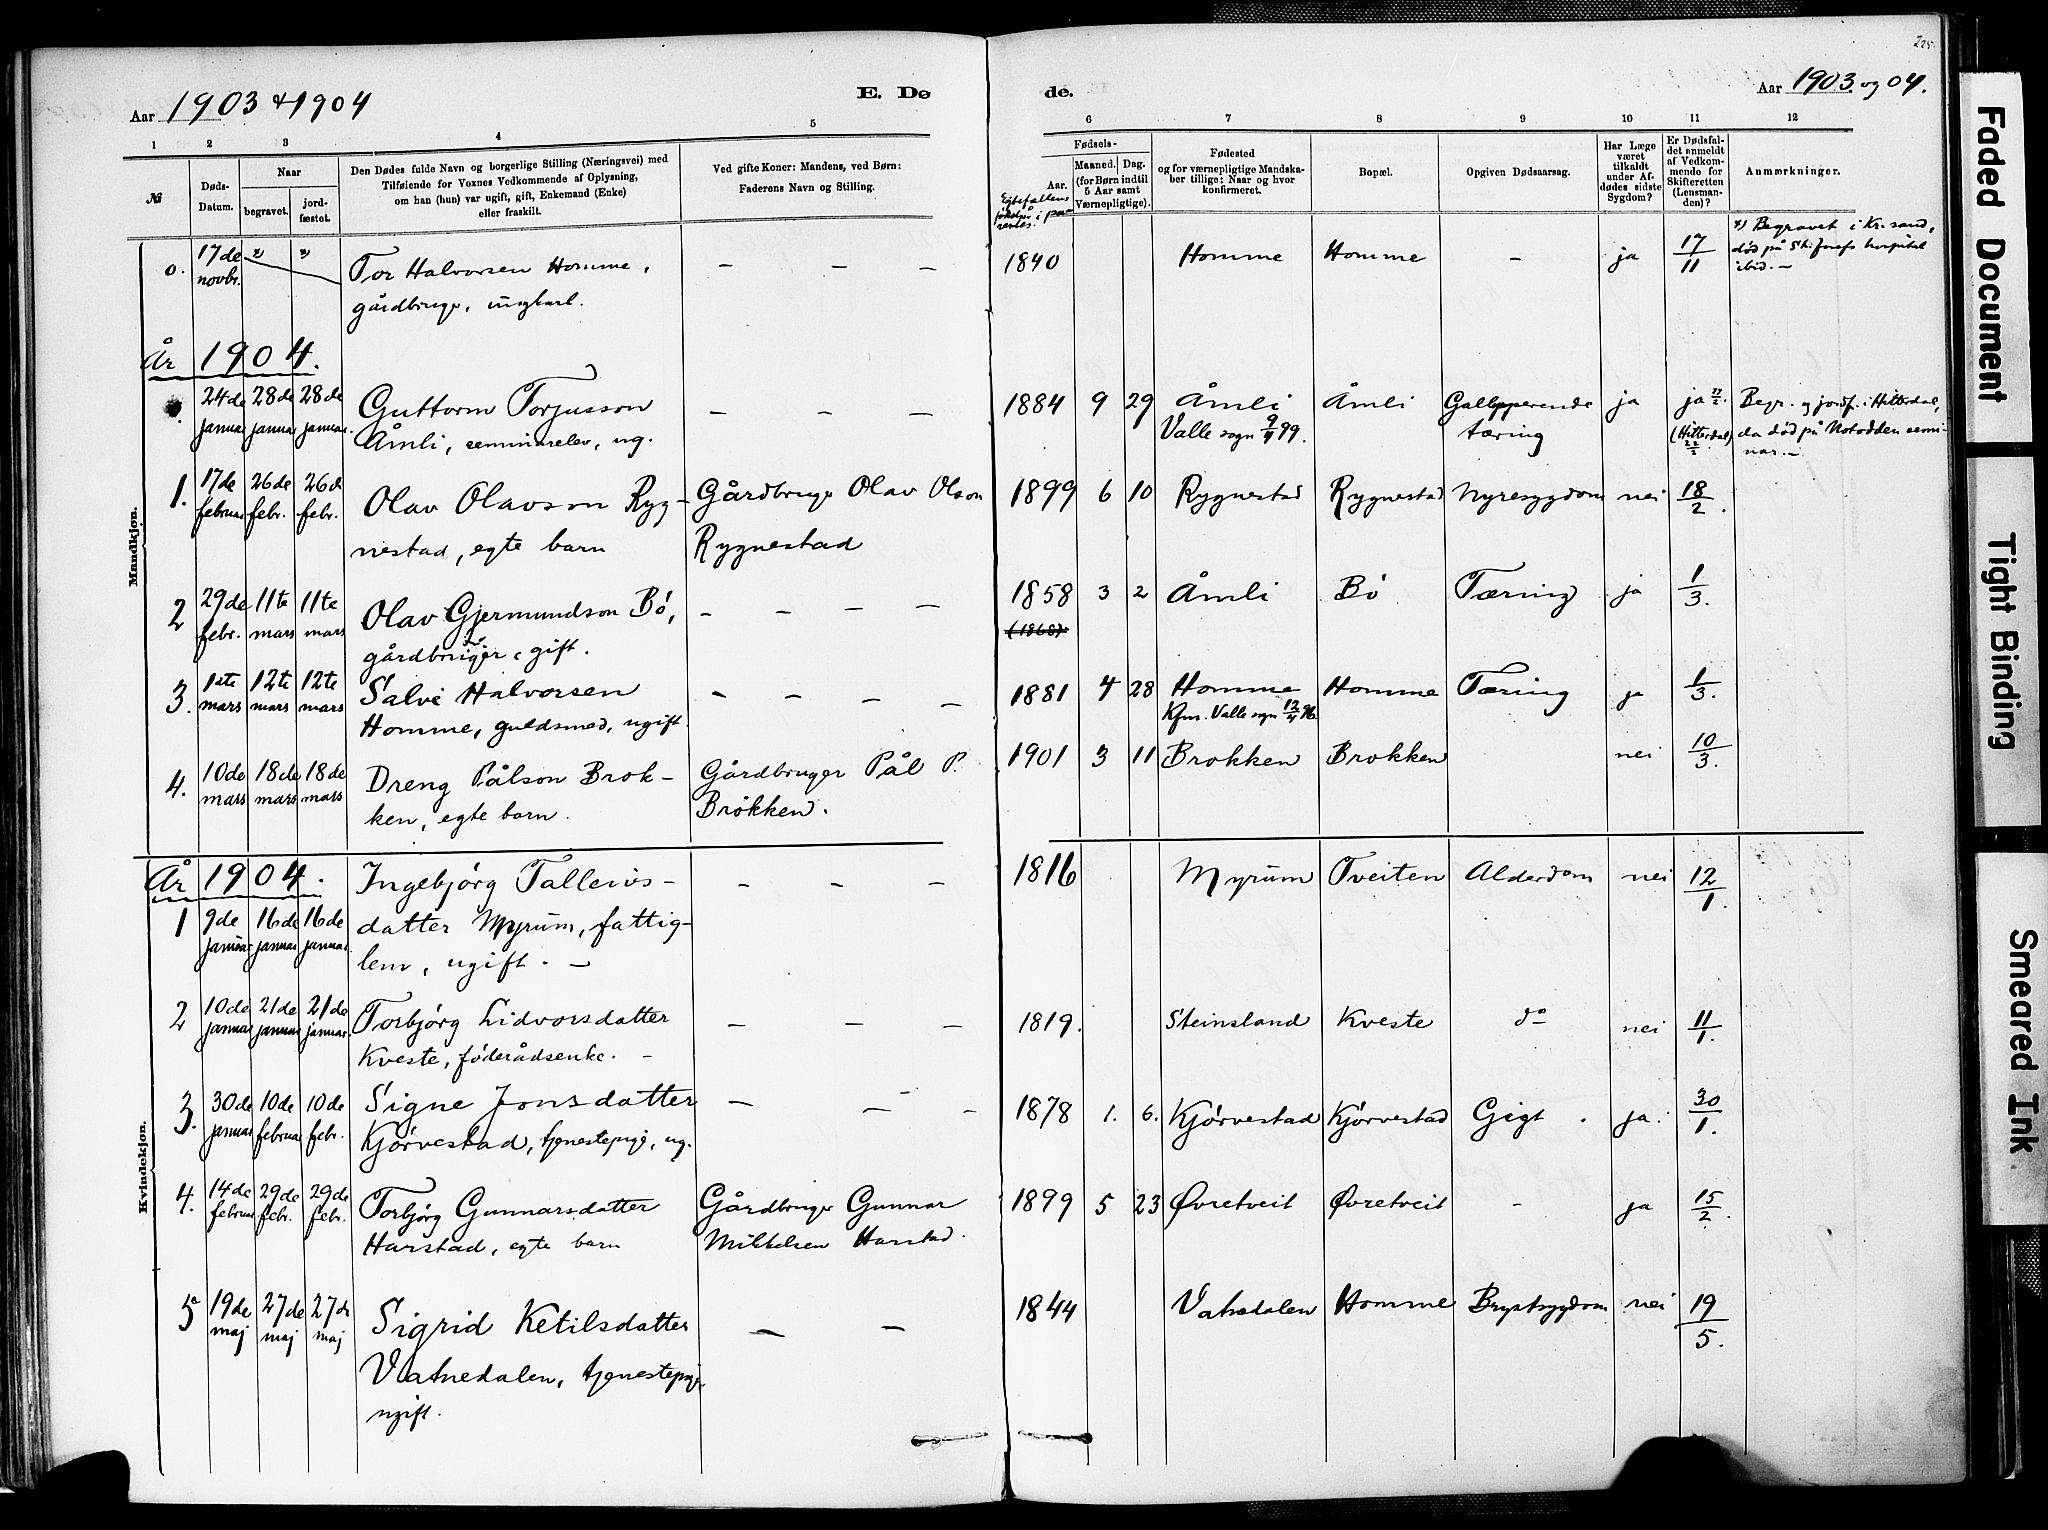 225.
Aar 1903 & 1904
E. Dø
de.
Aar 1903 og 04.
1 2 3 4 5 6 7 8 9 10 11 12
№
Døds-Datum.
Naar
begravet.
jord-fæstet.
Den Dødes fulde Navn og borgerlige Stilling (Næringsvei) med
Tilføiende for Voxnes Vedkommende af Oplysning,
om han (hun) var ugift, gift, Enkemand (Enke)
eller fraskilt.
Ved gifte Koner: Mandens, ved Børn:
Faderens Navn og Stilling.
Fødsels-
Aar.
Maaned. Dag.
(for Børn indtil
5 Aar samt
Værnepligtige).
Fødested
og for værnepligtige Mandska-
ber tillige: Naar og hvor
konfirmeret.
Bopæl.
Opgiven Dødsaarsag.
Har Læge
været
tilkaldt
under Af-
dødes sidste
Sygdom?
Er Dødsfal-
det anmeldt
af Vedkom-
mende for
Skifteretten
(Lensman-
den)?
Anmærkninger.
Mandkjøn.
o. 17de novbr. Tor Halvorsen Homme, — — — 1840 Homme Homme — ja 17/11 Begravet i Kr.sand,
død på St. Josefs hospital
ibid. —
gårdbruge, ungkarl.
År 1904.
24de januar 28de januar 28de januar. Guttorm Torjusson — — — 1884 9 29 Åmli Åmli Galopperende ja ja 22/2. Begr. og jordf. i Hitterdal,
Åmli, seminarelev, ug. Valle sogn 9/4 99. tæring (Hitterdal) 22/2 da død på Notodden semi-
nar. —
1. 17de februar 26de febr. 26de febr. Olav Olavson Ryg- Gårdbruge Olav Olson 1899 6 10 Rygnestad Rygnestad Nyresygdom nei 18/2.
nestad, egte barn Rygnestad
2 29de febr. 11te mars 11te mars Olav Gjermundson Bö, — — — — 1858 3 2 Åmli Bö Tæring ja 1/3.
gårdbruger, gift. (1868)
3. 1ste mars 12te mars 12te mars Salve Halvorsen — — — — 1881 4 28 Homme Homme Tæring ja 1/3.
Homme, guldsmed, ugift. Kfm. Valle sogn 12/4 96.
4. 10de mars 18de mars 18de mars Dreng Pålson Brok- Gårdbruger Pål P. 1901 3 11 Brokken Brokken nei 10/3.
ken, egte barn. Brökken.
Kvindekjøn.
År 1904. Ingebjörg Talleivs- — — — 1816 Myrum Tveiten Alderdom nei 12/1.
1 9de januar 16de januar 16de januar. datter Myrum, fattig-
lem, ugift. —
2 10de januar 21de januar 21de januar. Torbjörg Lidvorsdatter — — — 1819. Steinsland Kveste do nei 11/1.
Kveste, föderådsenke. —
3. 30de januar 10de februar 10de febr. Signe Jonsdatter — — — 1878 1. 6. Kjörvestad Kjörvestad Gigt. ja. 30/1.
Kjörvestad, tjenestepige, ug.
4. 14de februar 29de febr. 29de febr. Torbjörg Gunnarsdatter Gårdbruge Gunnar 1899 5 23 Øvretveit Øvretveit — ja 15/2.
Harstad, egte barn Mikkelsen Harstad.
5 19de maj 27de maj 27de maj Sigrid Ketilsdatter — — 1844 Vatnedalen Homme Brystsygdom nei 19/5.
Vatnedalen, tjenestepige
ugift.
Faded Document
Tight Binding
Smeared Ink